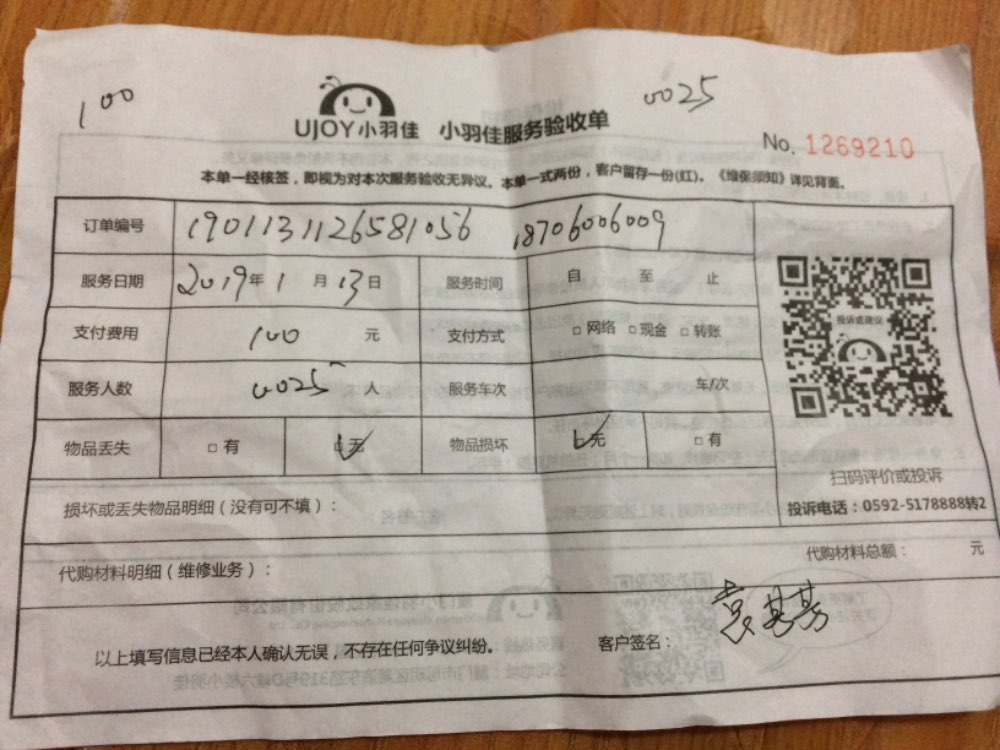 100
0025
UJOY小羽佳 小羽佳服务验收单
No. 1269210
本单一经核签，即视为对本次服务验收无异议。本单一式两份，客户留存一份(红)。《维保须知》详见背面。
订单编号 1901131126581056 18706006009
服务日期 2019年1月13日 服务时间 自 至 止
支付费用 100 元 支付方式 □网络 □现金 □转账
投诉或建议
服务人数 0025 人 服务车次 车/次
物品丢失 □有 □无 物品损坏 □无 □有
扫码评价或投诉
损坏或丢失物品明细（没有可不填）：
投诉电话：0592-5178888转2
代购材料总额： 元
代购材料明细（维修业务）：
以上填写信息已经本人确认无误，不存在任何争议纠纷。
客户签名：